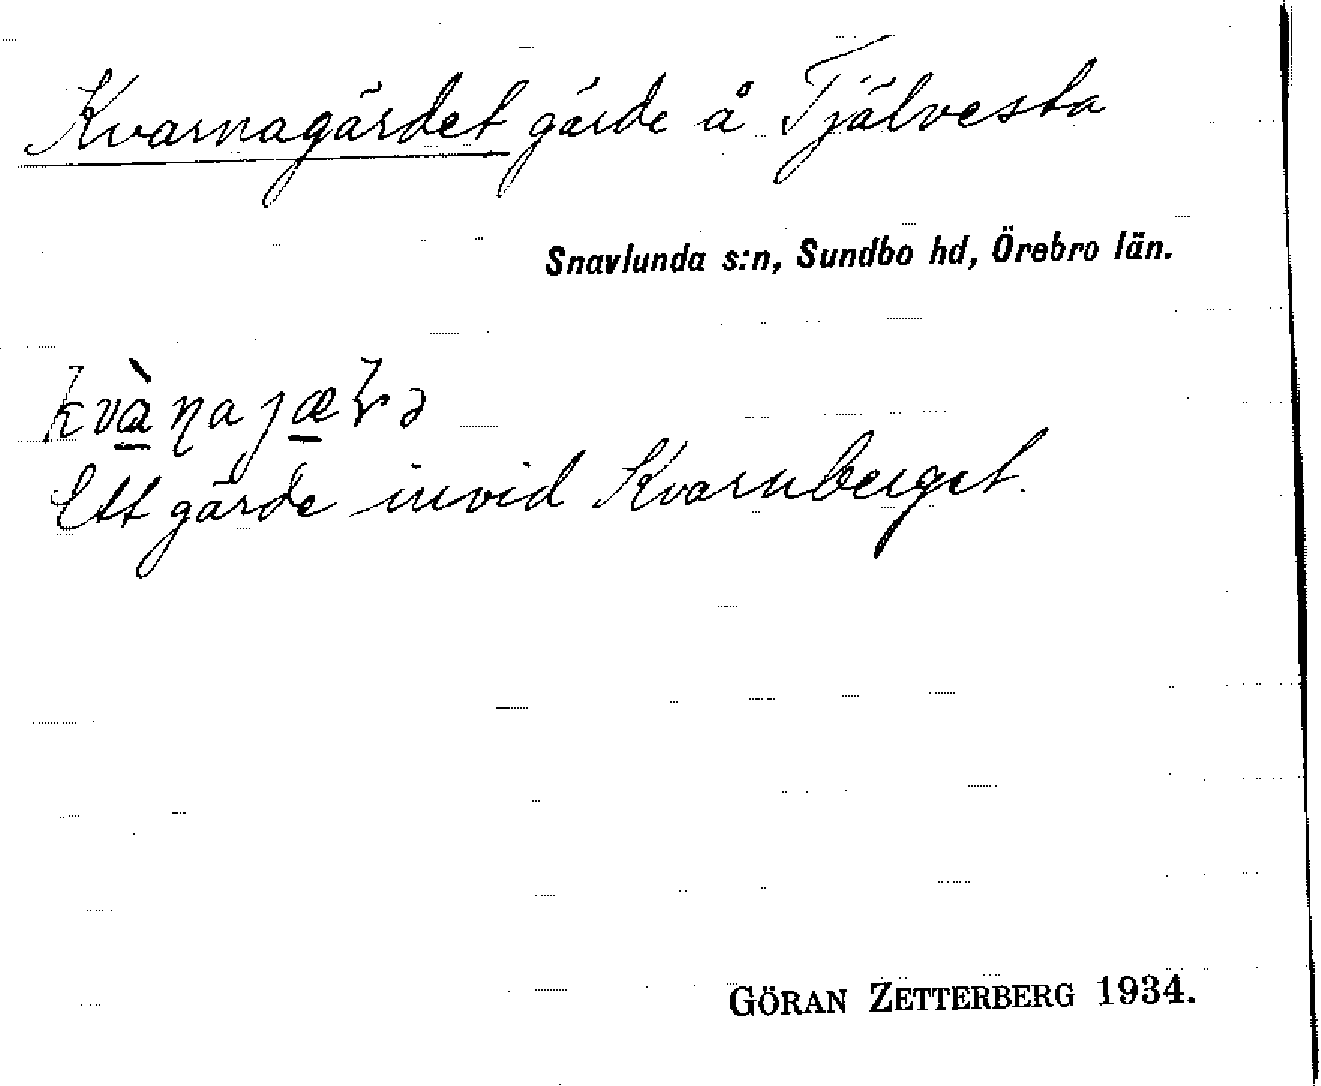 Kvarnagärdet gärde å Tjälvesta
Snavlunda s:n, Sundbo hd, Örebro län.
Ett gärde invid Kvarnberget.
GÖRAN ZETTERBERG 1934.